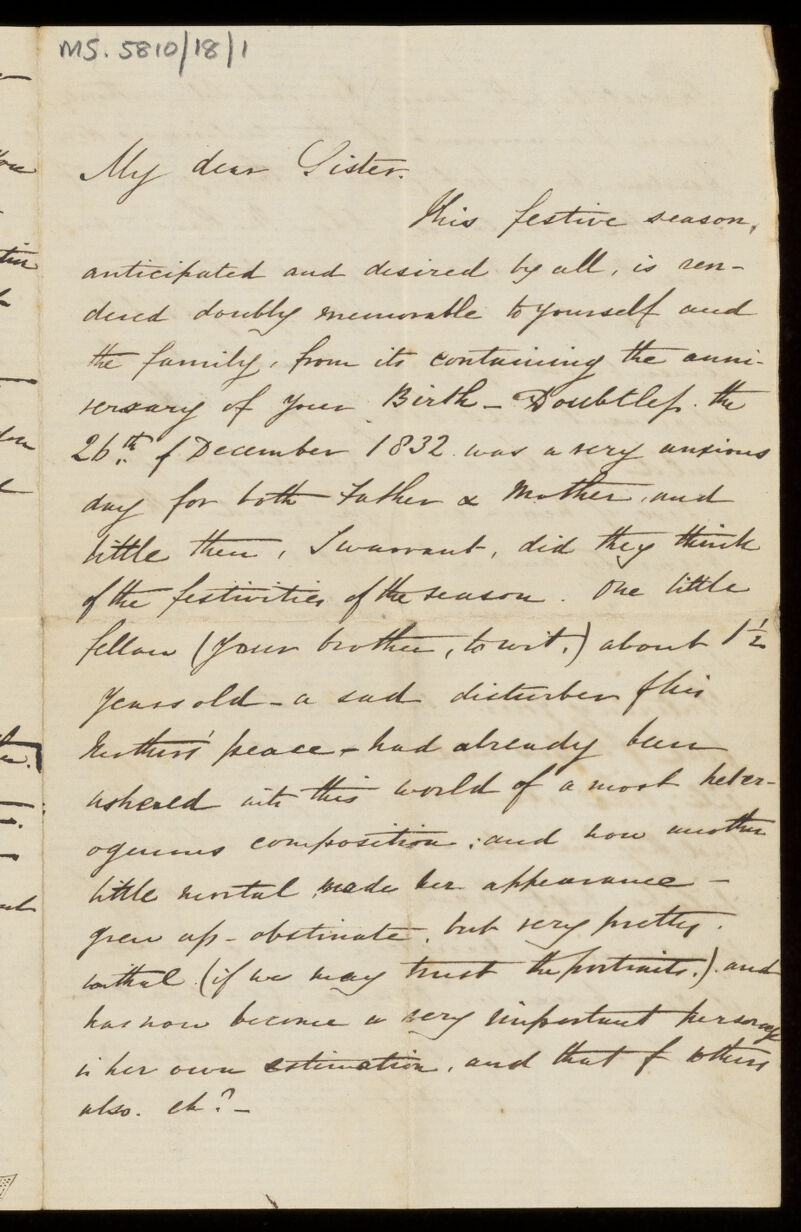 MS. 5810/18/1
My dear Sister.
This festive season,
anticipated and desired by all, is ren-
dered doubly memorable to yourself and
the family, from its containing the anni-
versary of your Birth – Doubtless the
26th of December 1832 was a very anxious
day for both Father & Mother, and
little then, I warrant, did they think
of the festivities of the season. One little
fellow (your brother, to wit,) about 1½
years old – a sad disturber of his
Mothers' peace – had already been
ushered into this world of a most heter-
ogenous composition; and now another
little mortal made her appearance –
grew up – obstinate, but very pretty,
withal (if we may trust the portraits.) and
has now become a very important personage
in her own estimation, and that of others
also. eh? –